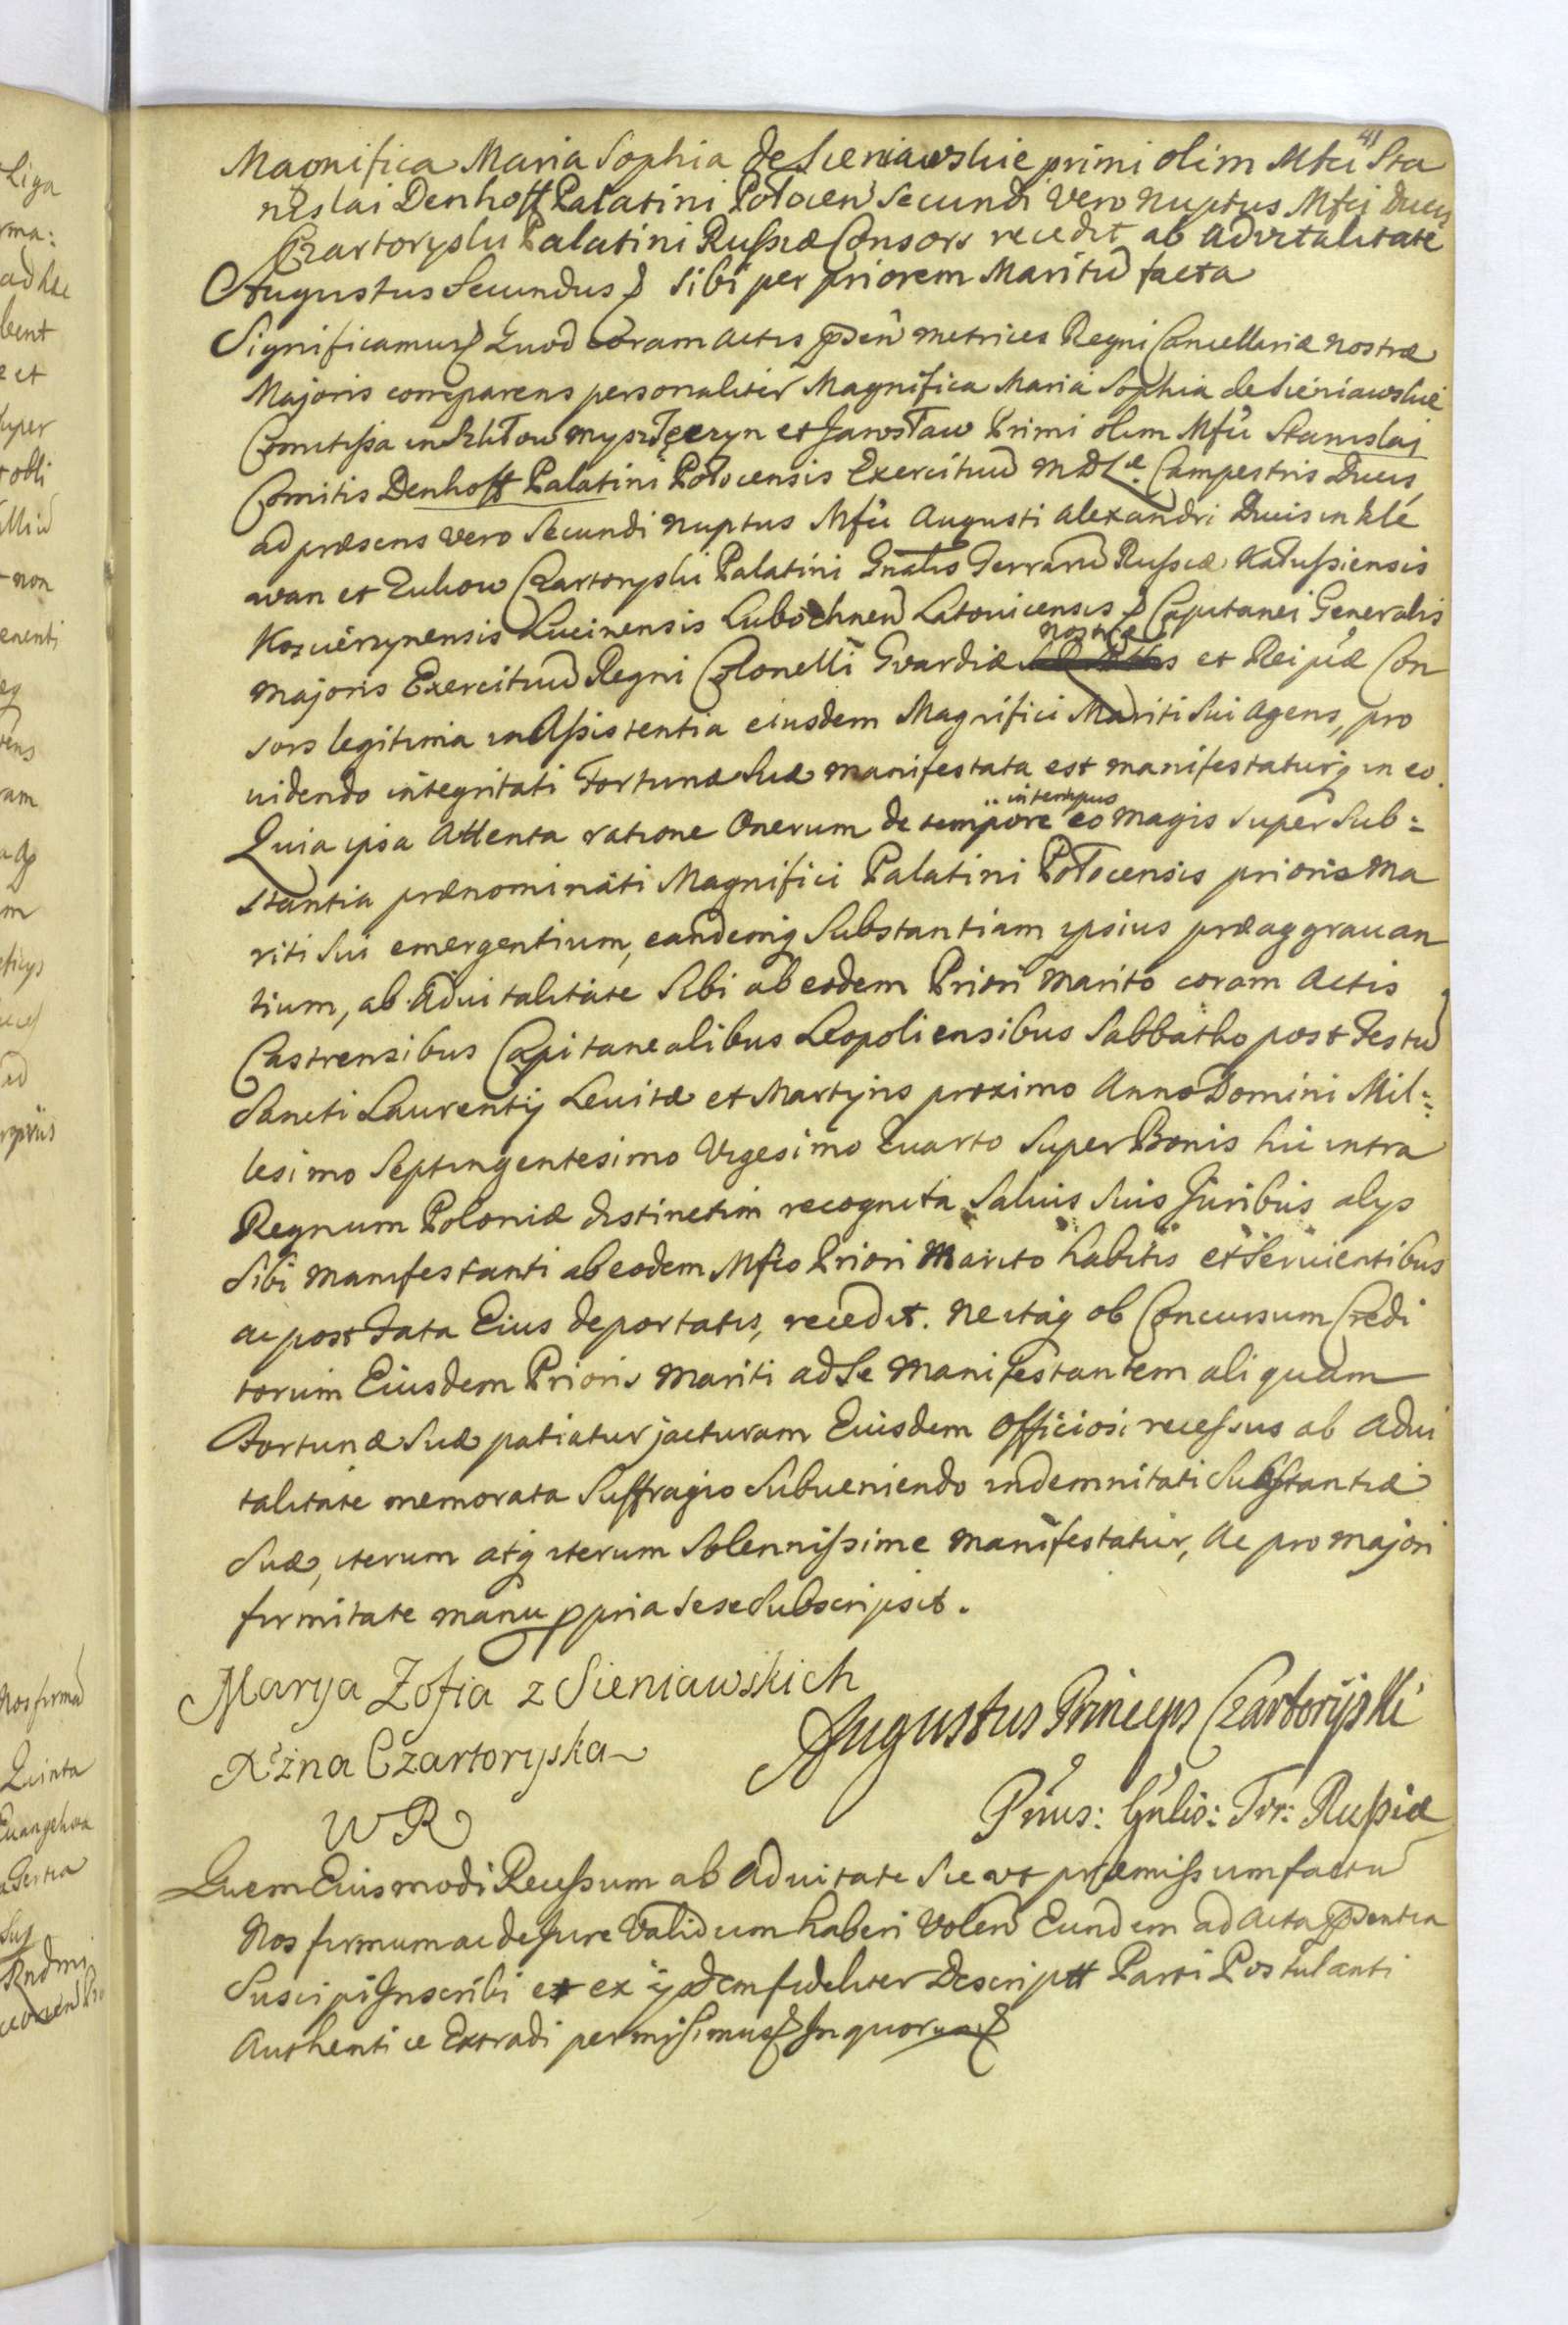 41
Magnifica Maria Sophia de Sieniawskie primi olim Mfci Sta
nislai Denhoff Palatini Połocen Secundi Vero nuptus Mfci Ducis
Czartoryski Palatini Russiæ Consors recedit ab advitalitate
Augustus Secundus sibi per priorem Maritū facta
Significamus Quod coram actis pnden metrices Regni Cancellariæ nostræ
Majoris comparens personaliter Magnifica Maria Sophia de Sieniawskie
Comitissa in Szkłow mysz Tęczyn et Jarosław Primi olim Mfci Stanislai
Comitis Denhoff Palatini Połocensis Exercituū M D L æ. Campestris Ducis,
ad præsens vero Secundi nuptus Mfci Augusti Alexandri Ducis in Kle
wan et Zukow Czartoryski Palatini Gnalis Terrarū Russiæ Kałussiensis
Koscierzynensis Lucinensis Lubochnen Latovicensis Capitanei Generalis
nostræ
Majoris Exercituū Regni Colonelli Gvardiæ et Rei pcæ Con
sors legitima in Assistentia eiusdem Magnifici Mariti Sui agens, pro
uidendo integritati Fortunæ Suæ manifestata est manifestaturq in eo.
in tempus
Quia ipsa Attenta ratione Onerum de tempore eo magis super Sub=
stantia prænominati Magnifici Palatini Połocensis prioris Ma
riti Sui emergentium, eandemq Substantiam ipsius præaggrauan
tium, ab Aduitalitate Sibi ab eodem Priori Marito coram Actis
Castrensibus Capitanealibus Leopoliensibus Sabbatho post Festū
Sancti Laurentij Leuitæ et Martyris proximo Anno Domini Mil=
lesimo Septingentesimo Vigesimo Quarto Super Bonis hic intra
Regnum Poloniæ distinctim recognita Saluis Suis Juribus alys
Sibi Manifestanti ab eodem Mfco Priori Marito habitis et Seruientibus
ac post Fata Eius deportatis, recedit. ne itaq ob Concursum Credi
torum Eiusdem Prioris Mariti ad Se Manifestantem aliquam
Fortunæ Suæ patiatur jacturam Eiusdem Officiosi recessus ab Adui
talitate memorata Suffragio Subueniendo indemnitati Substantiæ
Suæ, iterum atq iterum Solennissime manifestatur, Ac pro majori
firmitate manu ppria sese Subscripsit.
Marya Zofia z Sieniawskich
Xżna Czartoryska
WR
Augustus Princeps Czartoryski
Pnus: Gnlis: Trr: Russiæ
Quem Eiusmodi Recessum ab Aduitate Sic ut præmissum factū
Nos firmum ac de Jure Validum haberi Volen Eundem ad Acta pndentia
Suscipi Inscribi et ex ijsdem fideliter Descriptt Parti Postulanti
Authentice Extradi permisimus In quorum